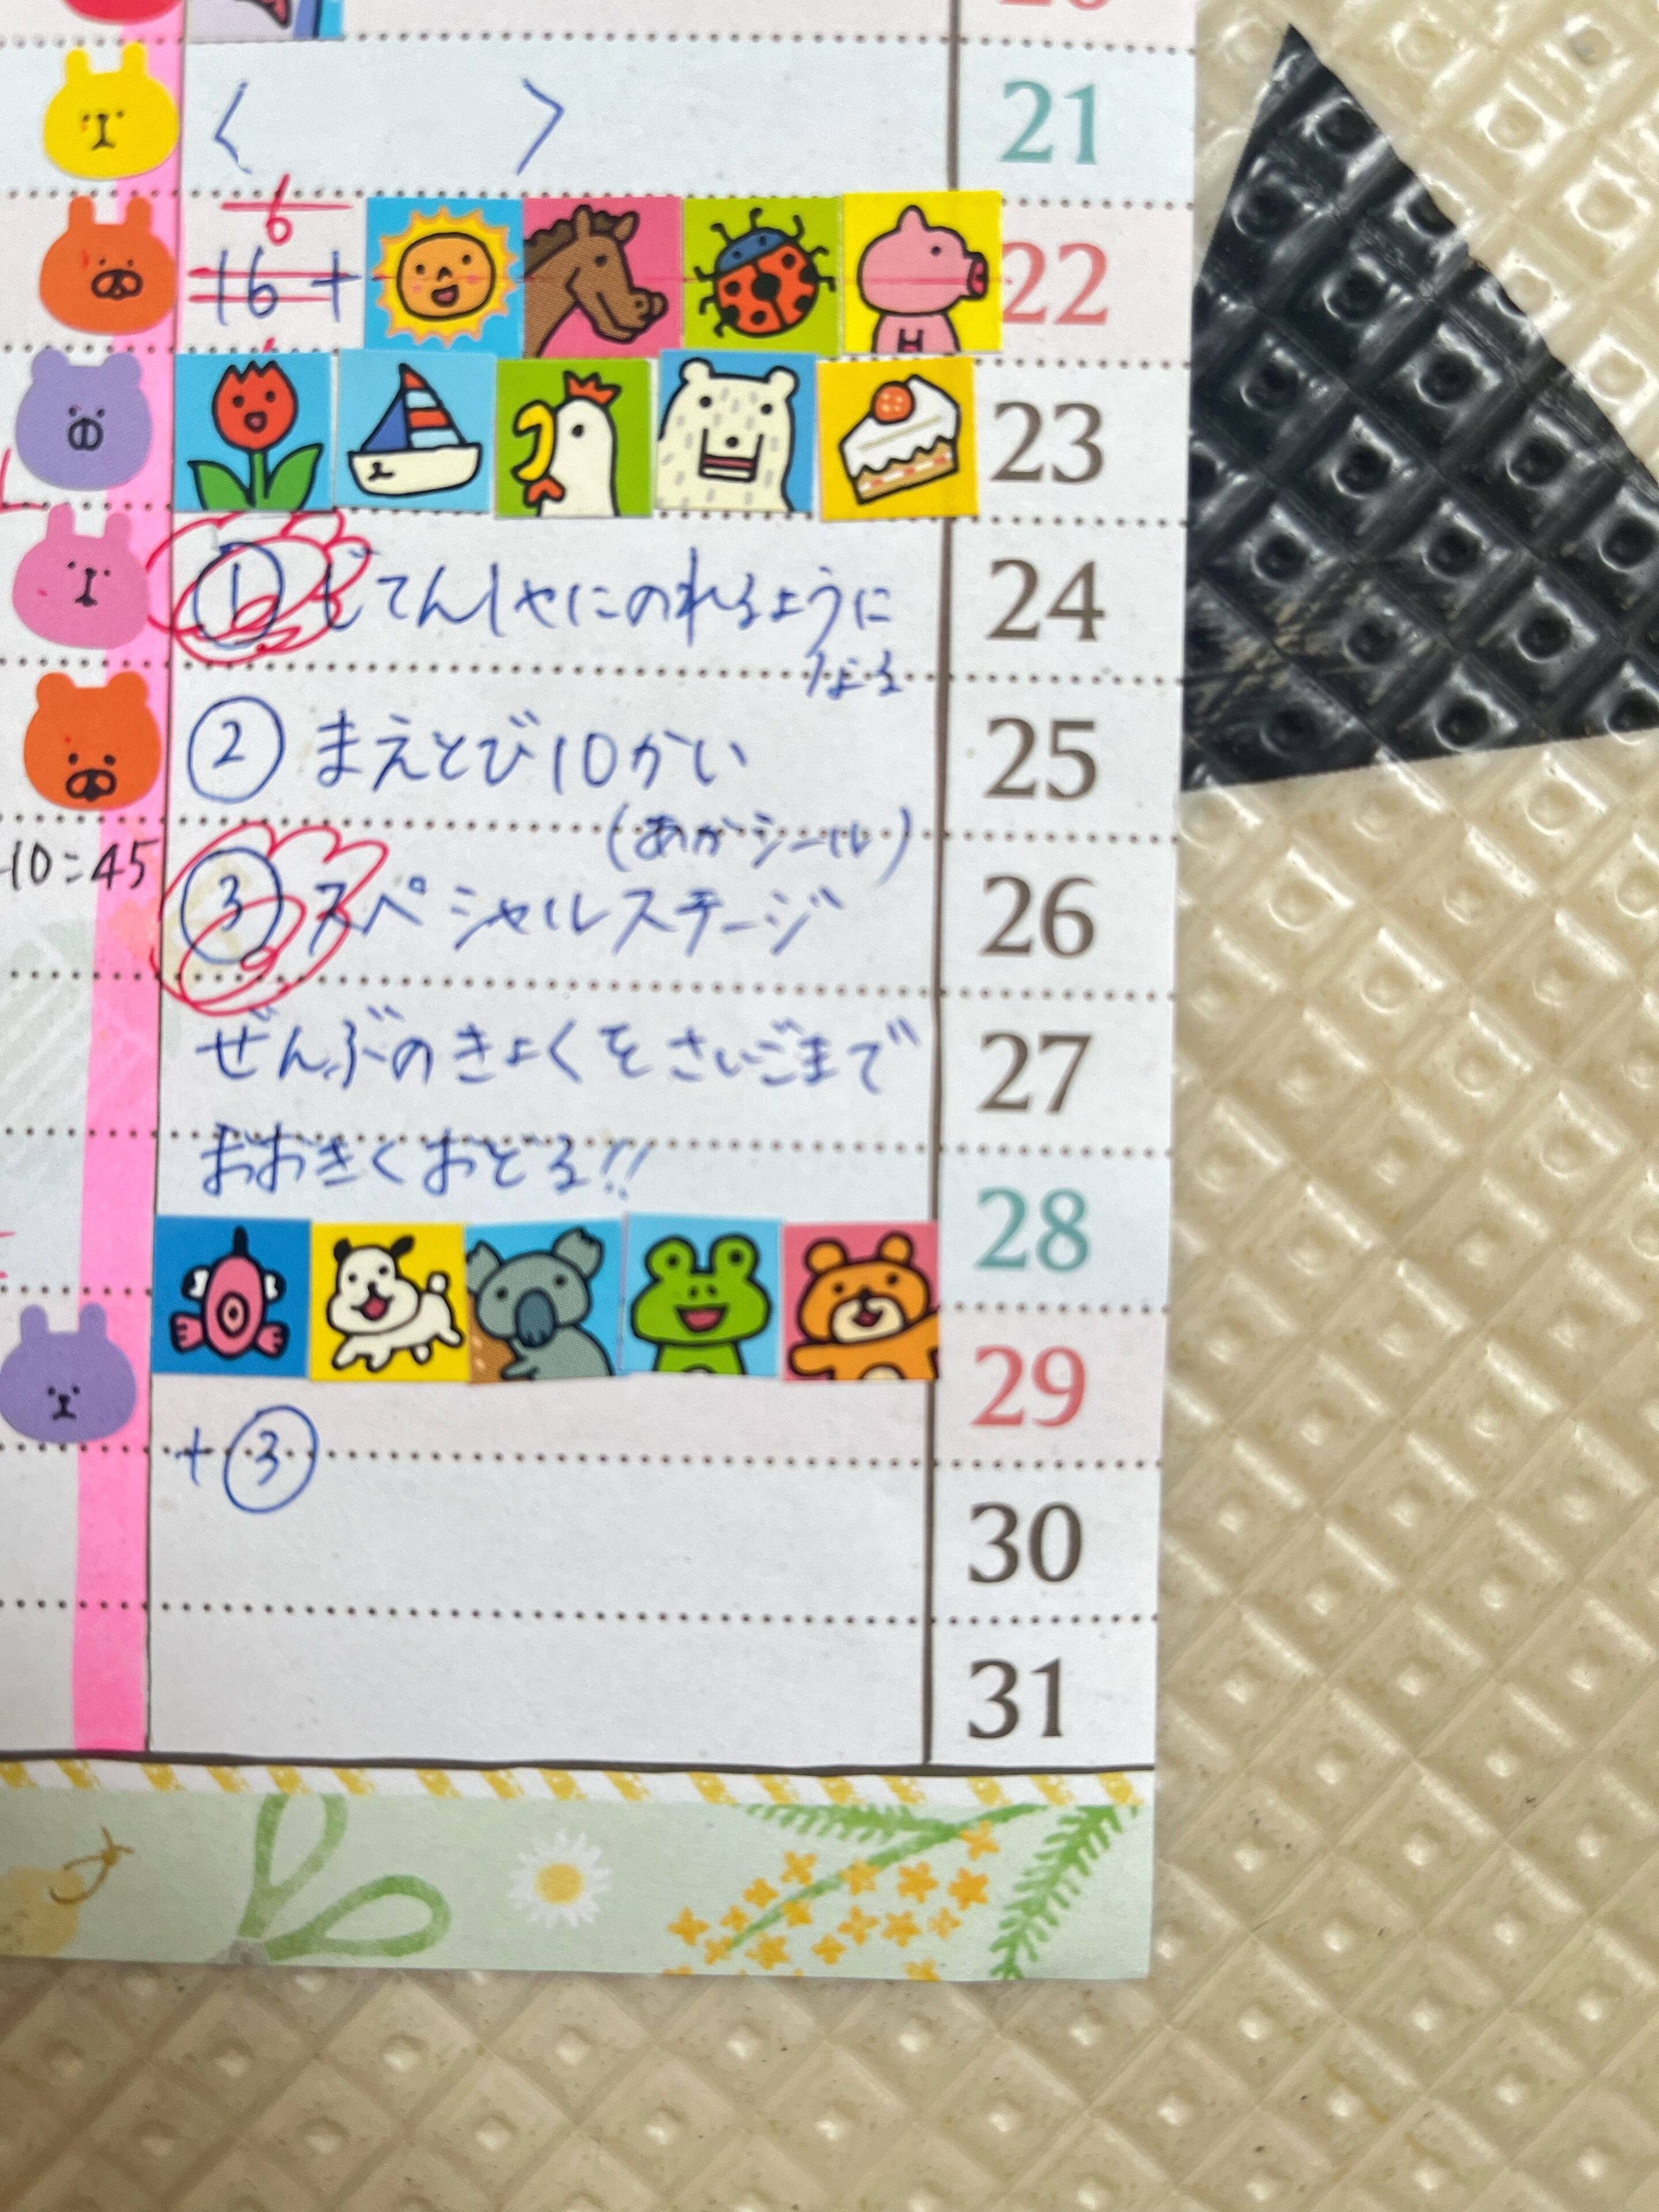 < > 21
6
16 + 22
23
① じてんしゃにのれるように 24
なる
② まえとび10かい 25
(あかシール)
10:45
③ スペシャルステージ 26
ぜんぶのきょくをさいごまで 27
おおきくおどる!! 28
29
+③
30
31